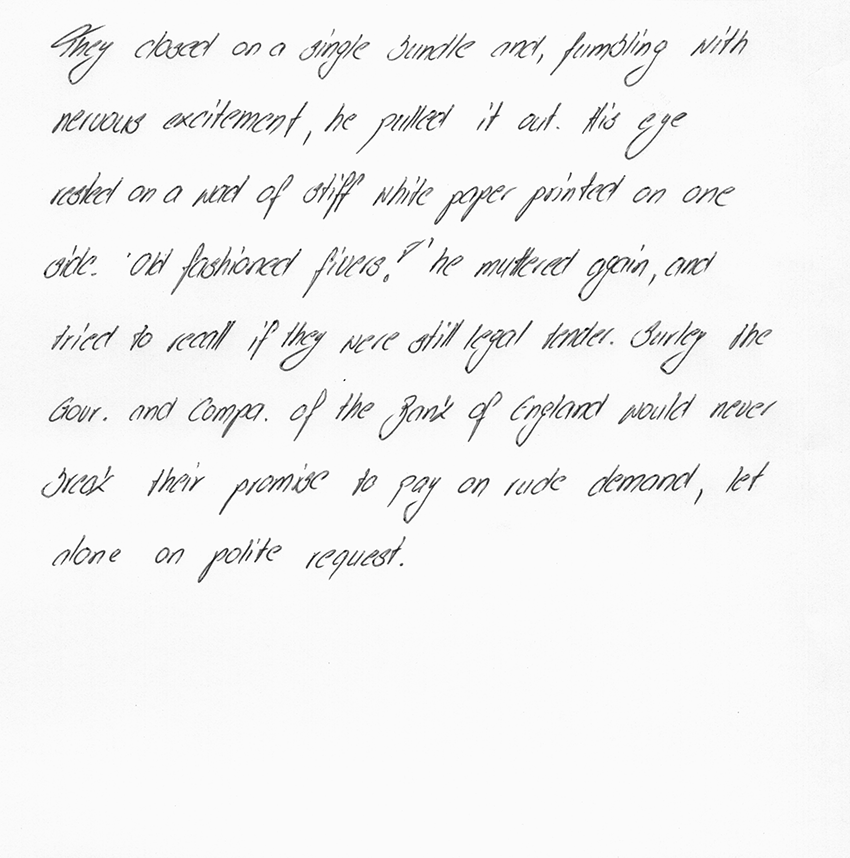 They closed on a single bundle and, fumbling with
nervous excitement, he pulled it out. His eye
rested on a wad of stiff white paper printed on one
side. 'Old fashioned fivers!' he muttered again, and
tried to recall if they were still legal tender. Surley the
Govr. and Compa. of the Bank of England would never
break their promise to pay on rude demand, let
alone on polite request.